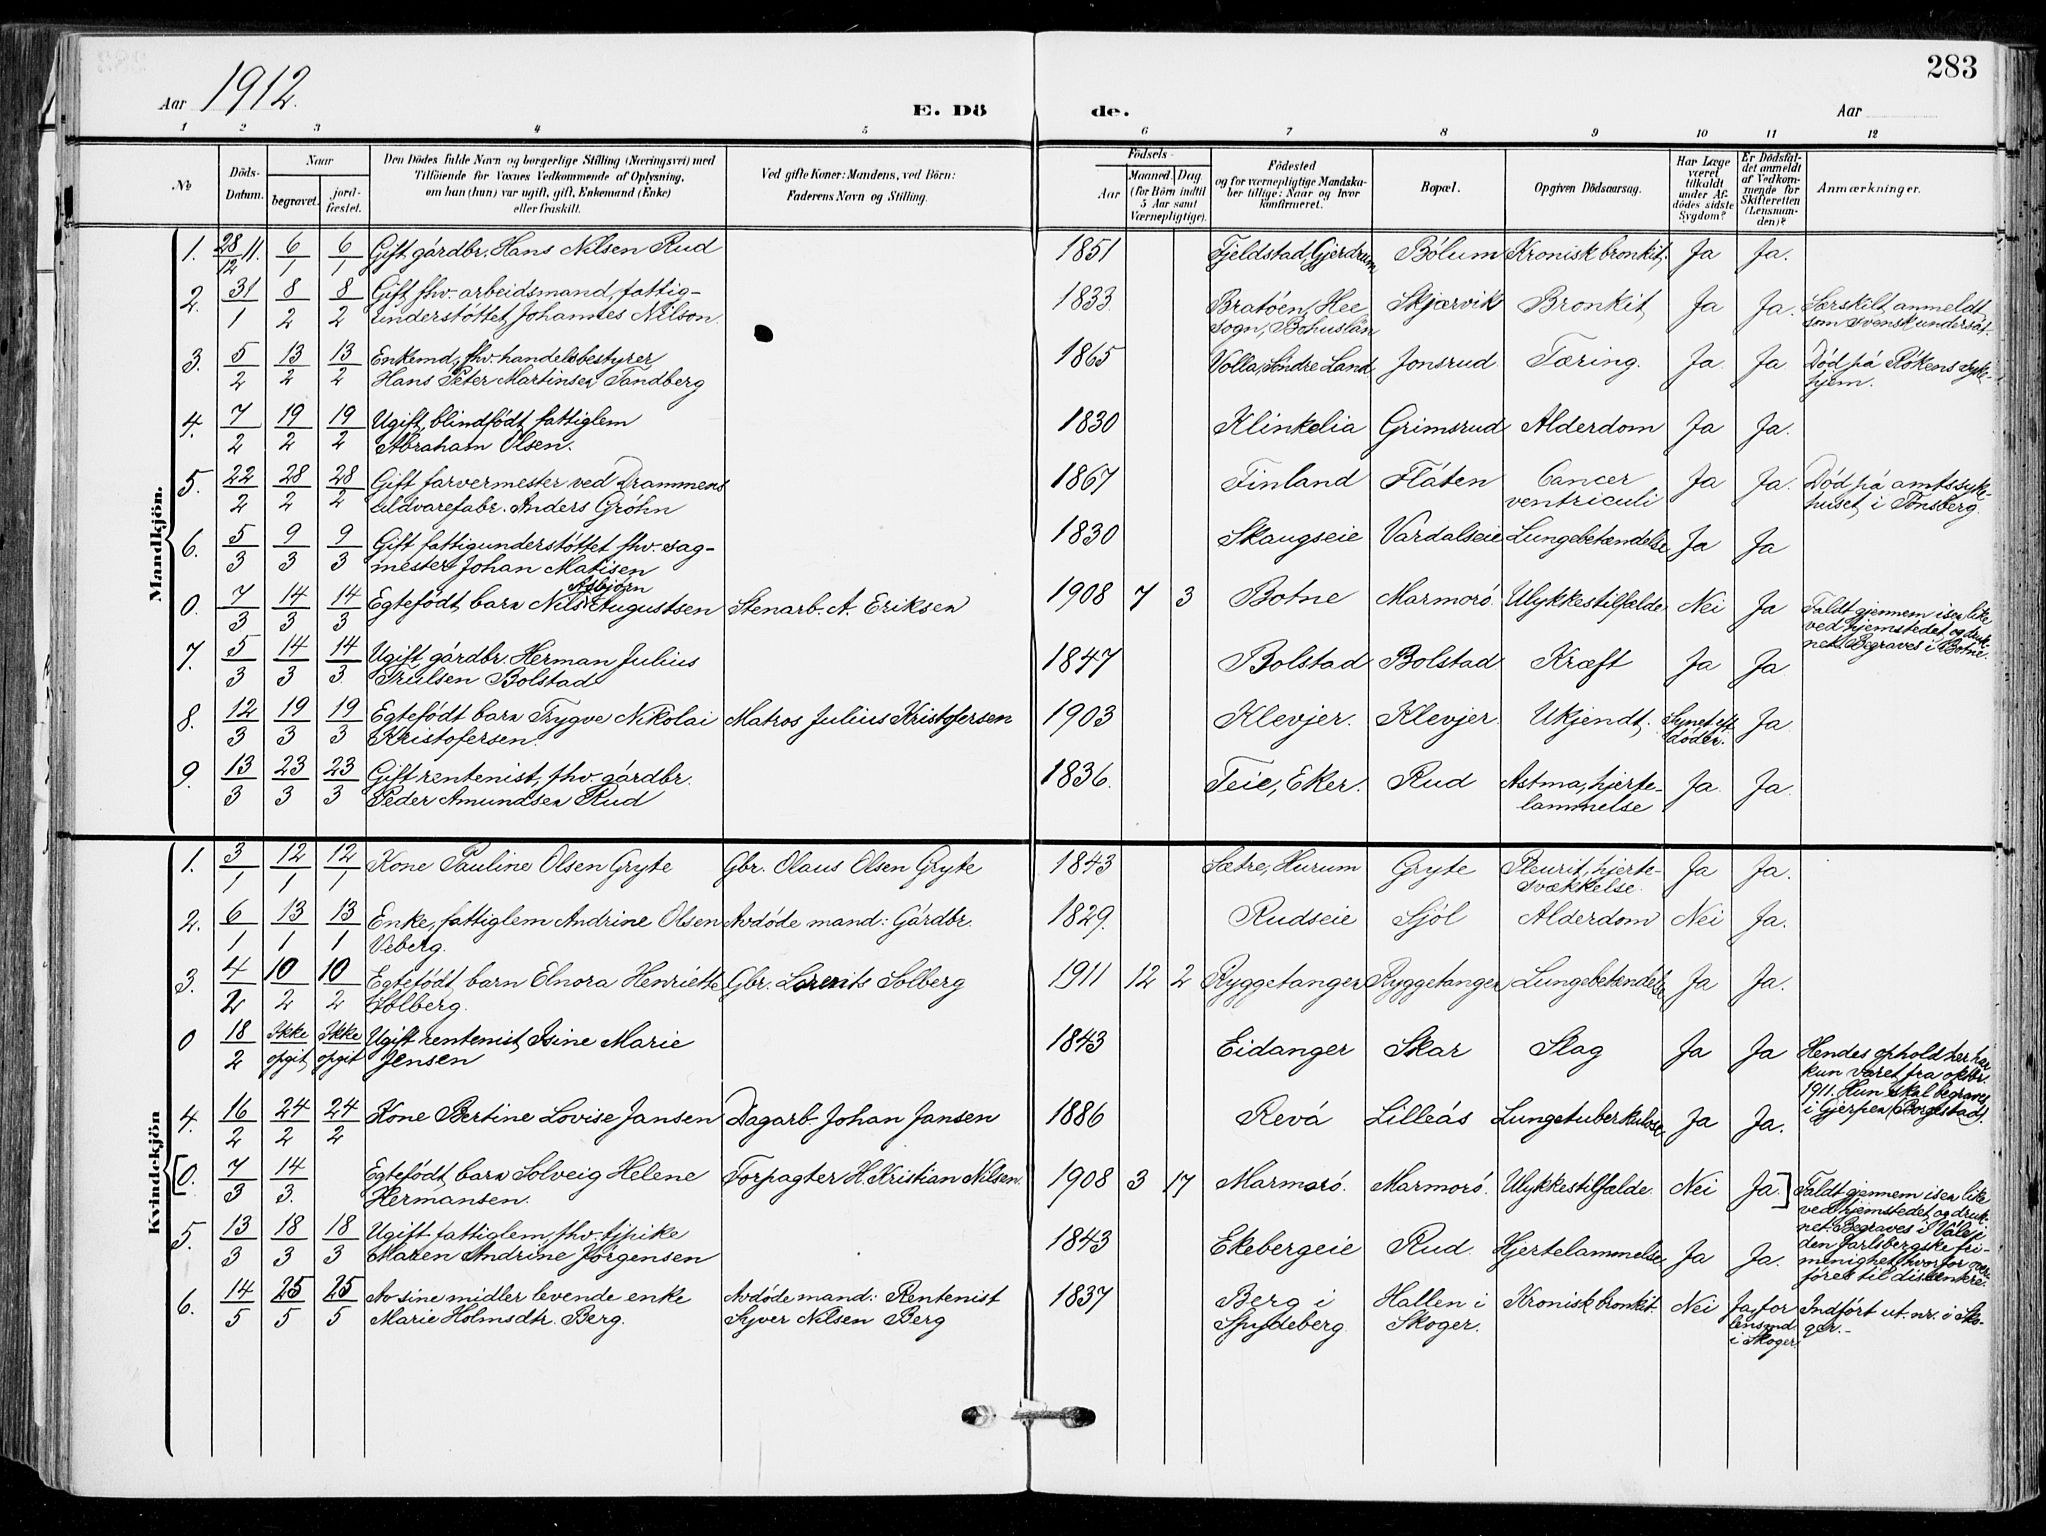 283
Aar 1912.
E. Dö
de.
Aar
1 2 3 4 5 6 7 8 9 10 11 12
No
Döds-Datum.
Naar
begravet.
jord-fæstet.
Den Dödes fulde Navn og borgerlige Stilling (Næringsvei) med
Tilföiende for Voxnes Vedkommende af Oplysning,
om han (hun) var ugift, gift, Enkemand (Enke)
eller fraskilt.
Ved gifte Koner: Mandens, ved Börn:
Faderens Navn og Stilling.
Födsels-
Aar
Maaned. Dag.
(for Börn indtil
5 Aar samt
Værnepligtige).
Födested
og for værnepligtige Mandska-
ber tillige: Naar og hvor
konfirmeret.
Bopæl.
Opgiven Dödsaarsag.
Har Læge
været
tilkaldt
under Af-
dödes sidste
Sygdom?
Er Dödsfal-
det anmeldt
af Vedkom-
mende for
Skifteretten
(Lensman-
den)?
Anmærkninger.
Mandkjön.
1. 28/12 11. 6/1 6/1 Gift gårdbr. Hans Nilsen Rud 1851 Fjeldstad, Gjerdrum Bólum Kronisk bronkit. Ja Ja.
2. 31/1 8/2 8/2 Gift fhv. arbeidsmand, fattig-
understöttet Johannes Nilson. 1833. Bratöen, Hee
sogn, Bohuslän Skjærvik Bronkit Ja Ja. Særskilt anmeldt
som svensk undersåt.
3. 5/2 13/2 13/2 Enkemd, fhv. handelsbestyrer
Hans Peter Martinsen Tandberg 1865 Volla, Söndre Land Jonsrud Tæring. Ja. Ja Död på Rökens syke-
hjem.
4. 7/2 19/2 19/2 Ugift, blindfödt fattiglem
Abraham Olsen. 1830 Klinkelia Grimsrud Alderdom Ja Ja.
5. 22/2 28/2 28/2 Gift farvermester ved Drammens
uldvarefabr. Anders Gröhn 1867 Finland Flåten Cancer
ventriculi Ja Ja. Död på amtssyke-
huset i Tönsberg.
6. 5/3 9/3 9/3 Gift fattigunderstöttet fhv. sag-
mester Johan Matisen 1830 Skaugseie Vardalseie Lungebetændelse Ja Ja
0. 7/3 14/3 14/3 Egtefödt barn Nils Asbjörn Augustsen Stenarb. A. Eriksen 1908 7 3 Botne Marmorö. Ulykkestilfælde Nei Ja Faldt gjennem isen like
ved hjemstedet og druk-
net. Begraves i Botne.
7. 5/3 14/3 14/3 Ugift gårdbr. Herman Julius
Trulsen Bolstad 1847 Bolstad Bolstad Kræft Ja Ja
8. 12/3 19/3 19/3 Egtefödt barn Trygve Nikolai
Kristofersen. Matros Julius Kristofersen 1903 Klevjer. Klevjer. Ukjendt. Synet eft.
döden. Ja
9. 13/3 23/3 23/3 Gift rentenist, fhv. gårdbr.
Peder Amundsen Rud 1836. Teie, Eker. Rud Astma, hjerte-
lammelse Ja Ja.
Kvindekjön
1. 3/1 12/1 12/1 Kone Pauline Olsen Gryte Gbr. Olaus Olsen Gryte 1843 Sætre, Hurum Gryte Pleurit, hjerte-
svækkelse. Ja Ja.
2. 6/1 13/1 13/1 Enke, fattiglem Andrine Olsen
Veberg. Avdöde mand: Gårdbr. 1829. Rudseie Sjöl Alderdom Nei Ja.
3. 4/2 10/2 10/2 Egtefödt barn Elnora Henriette
Solberg. Gbr. Lorents Solberg 1911 12 2 Ryggetangen Ryggetangen Lungebetændelse Ja Ja.
0 18/2 Ikke opgit Ikke opgit Ugift rentenist Isine Marie
Jensen 1843 Eidanger Skar Slag Ja Ja Hendes ophold her har
kun været fra oktbr.
1911. Hun skal begraves
i Gjerpen (Borgestad).
4. 16/2 24/2 24/2 Kone Bertine Lovise Jansen Dagarb. Johan Jansen 1886 Revå Lilleås Lungetuberkulose Ja Ja.
[0. 7/3 14/3. Egtefödt barn Solveig Helene
Hermansen. Forpagter H. Kristian Nilsen. 1908 3 17 Marmorö. Marmorö. Ulykkestilfælde. Nei Ja.] Faldt gjennem isen like
ved hjemstedet og druk-
net. Begraves i Våle i
den Jarlsbergske fri-
menighet, hvorfor over-
föres til dissenterei
5. 13/3 18/3 18/3 Ugift fattiglem, fhv. tjpike
Maren Andrine Jörgensen 1843 Ekebergeie Rud. Hjertelammelse Ja Ja.
6. 14/5 25/5 25/5 Av sine midler levende enke
Marie Holmsdtr. Berg. Avdöde mand: Rentenist
Syver Nilsen Berg 1837 Berg i
Spydeberg. Hallen i
Skoger. Kronisk bronkit. Nei Ja, for
lensmd.
i Skoger. Indfört ut. nr. i Sko-
ger.